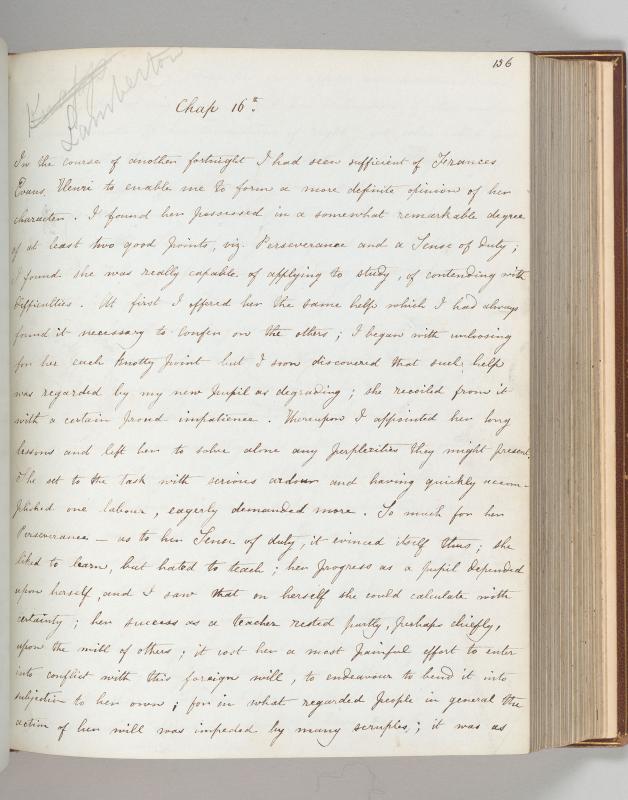 136
Lamberton
Chap 16th.
In the course of another fortnight I had seen sufficient of Frances
Evans Henri to enable me to form a more definite opinion of her
character. I found her possessed in a somewhat remarkable degree
of at least two good points, viz. Perseverance and a Sense of duty;
I found she was really capable of applying to study, of contending with
difficulties. At first I offered her the same help which I had always
found it necessary to confer on the others; I began with unloosing
for her each knotty point but I soon discovered that such help
was regarded by my new pupil as degrading; she recoiled from it
with a certain proud impatience. Thereupon I appointed her long
lessons and left her to solve alone any perplexities they might present.
She set to the task with serious ardour and having quickly accom-
plished one labour, eagerly demanded more. So much for her
Perseverance — as to her Sense of duty, it evinced itself thus; she
liked to learn, but hated to teach; her progress as a pupil depended
upon herself, and I saw that on herself she could calculate with
certainty; her success as a teacher rested partly, perhaps chiefly,
upon the will of others; it cost her a most painful effort to enter
into conflict with this foreign will, to endeavour to bend it into
subjection to her own; for in what regarded people in general the
action of her will was impeded by many scruples; it was as